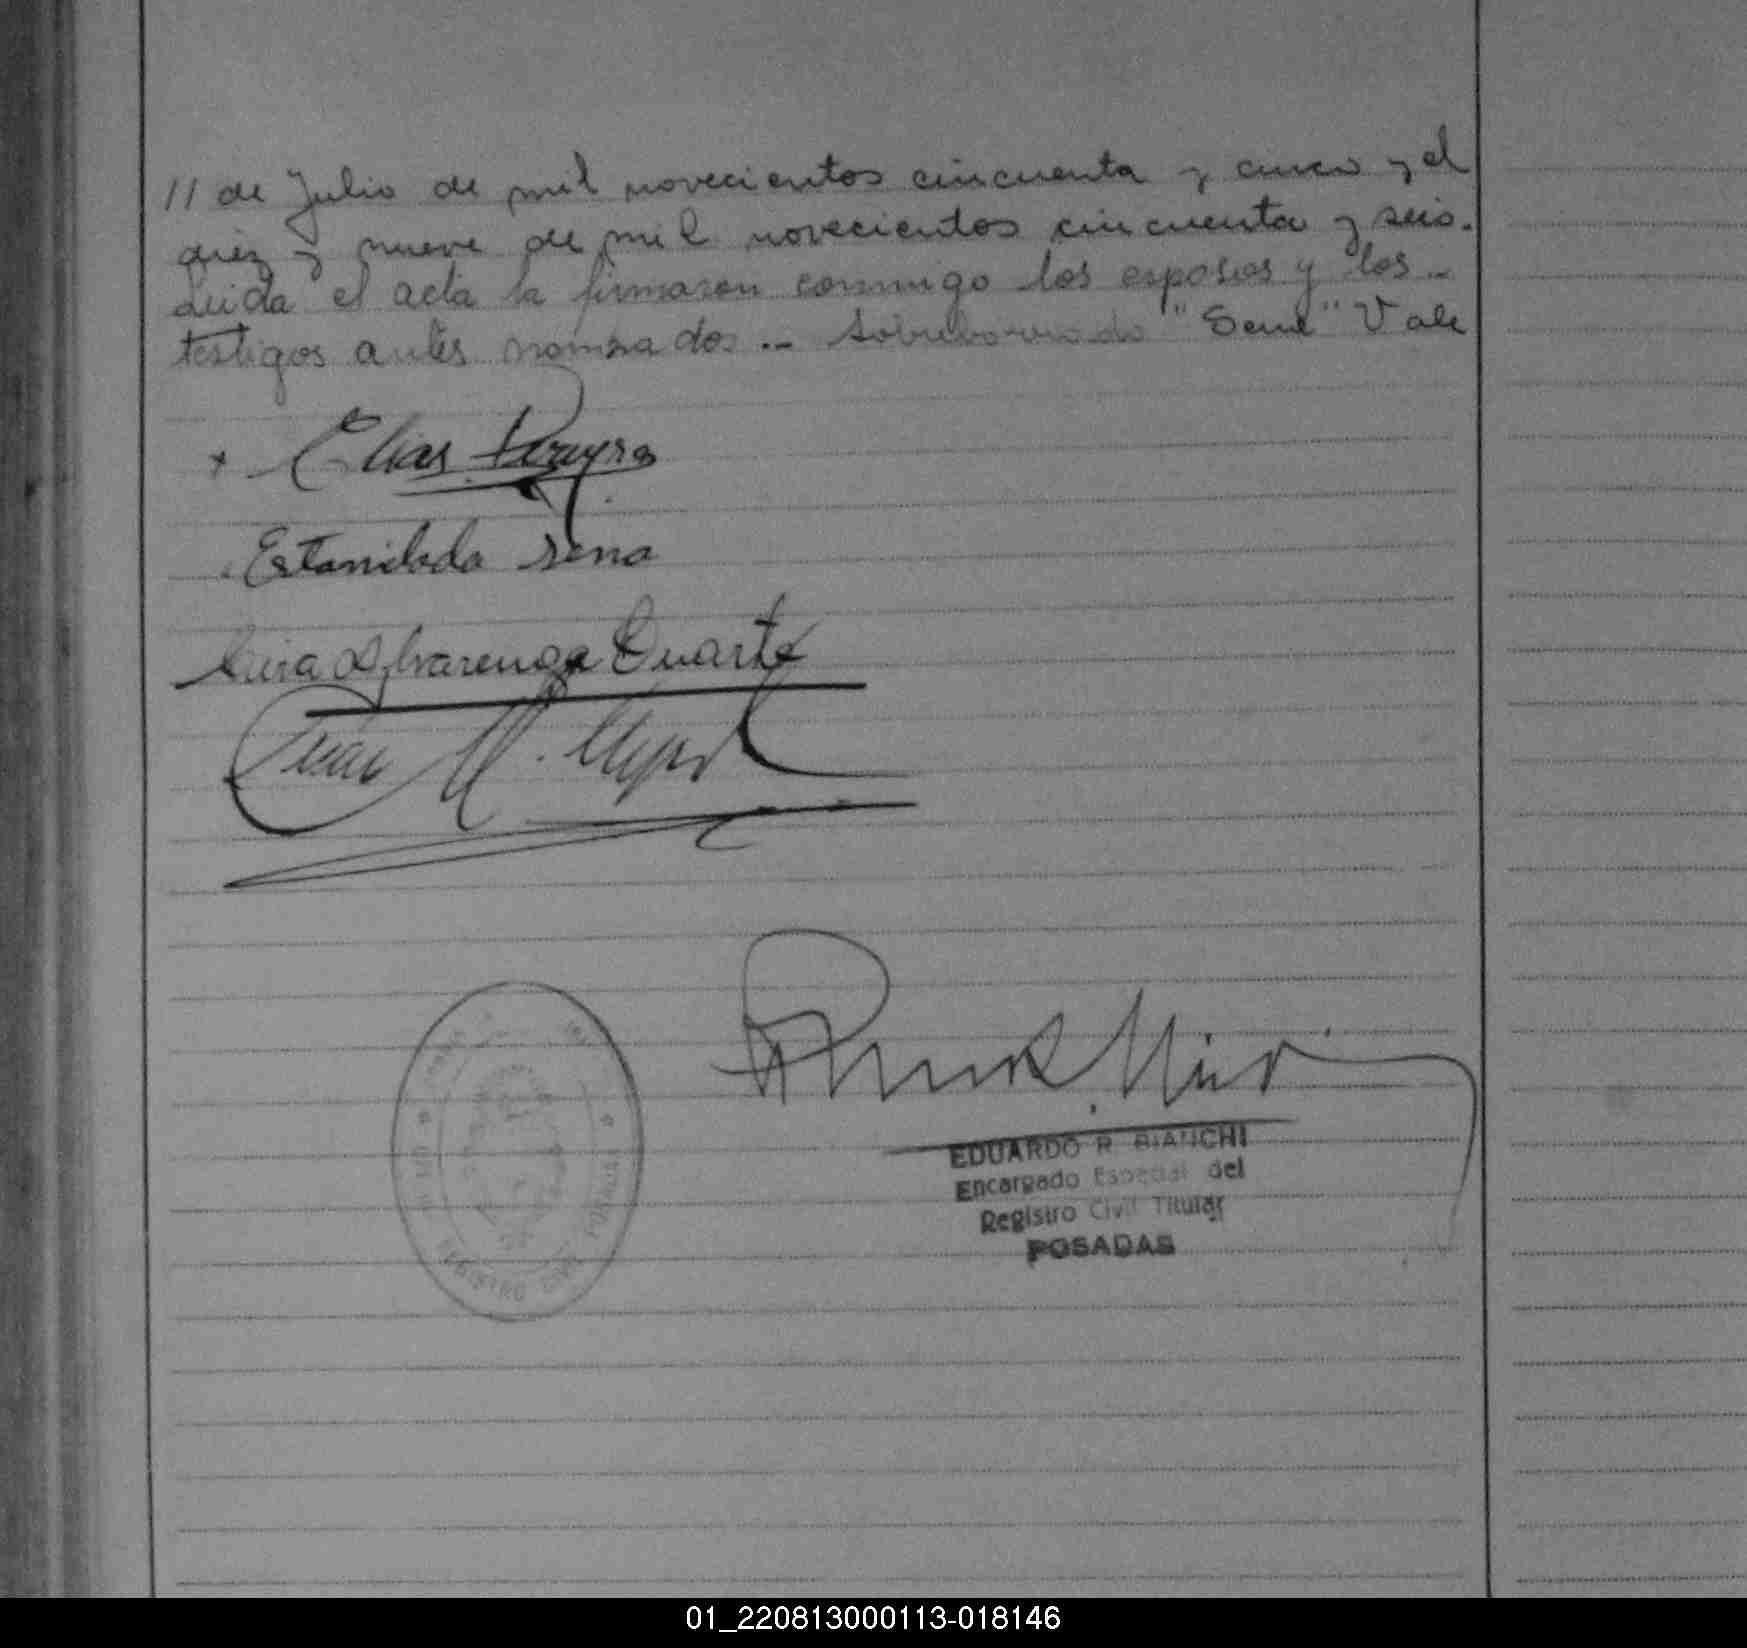 // de Julio de mil novecientos cincuenta y cinco y el
diez y nueve de mil novecientos cincuenta y seis.
Leida el acta la firmaron conmigo los esposos y los..
testigos antes nombrados .. Sobreborrado "Sena" Vale
Elias Pereyra
Estanislada Sena
Alvarenga Duarte
Juan M.
REGISTRO CIVIL POSADAS
EDUARDO R. BIANCHI
Encargado Especial del
Registro Civil Titular
POSADAS
01_220813000113-018146